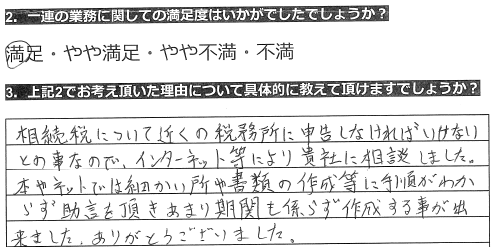 2. 一連の業務に関しての満足度はいかがでしたでしょうか？
満足・やや満足・やや不満・不満
3. 上記2でお考え頂いた理由について具体的に教えて頂けますでしょうか？
相続税について近くの税務所に申告しなければいけない
との事なので、インターネット等により貴社に相談しました。
本やネットでは細かい所や書類の作成等に手順がわか
らず助言を頂きあまり期関も係らず作成する事が出
来ました。ありがとうございました。